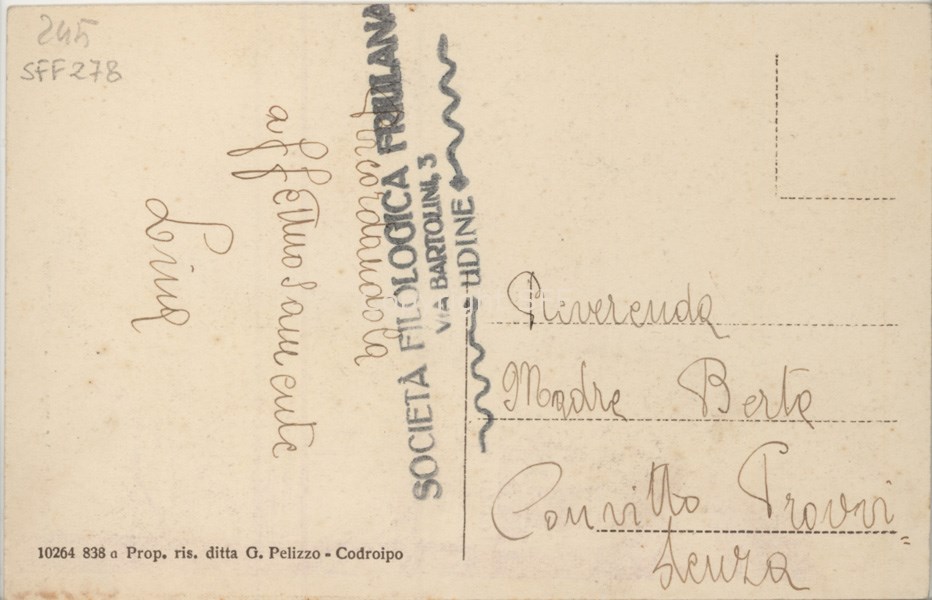 245
SFF278
Ricordandola
affettuosamente
Lina
SOCIETÀ FILOLOGICA FRIULANA
VIA BARTOLINI, 3
UDINE
Reverenda
Madre Berta
Convitto Provvi=
denza
10264 838 a Prop. ris. ditta G. Pelizzo - Codroipo